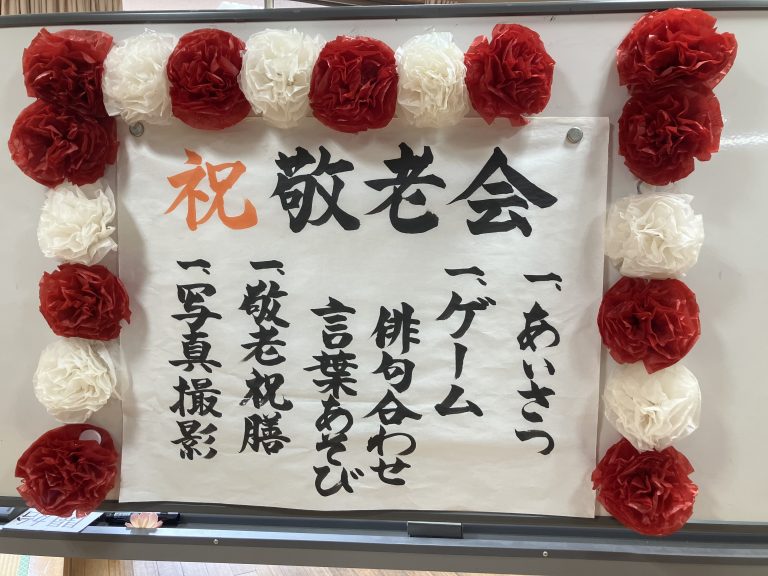 祝敬老会
一、あいさつ
一、ゲーム
俳句合わせ
言葉あそび
一、敬老祝膳
一、写真撮影